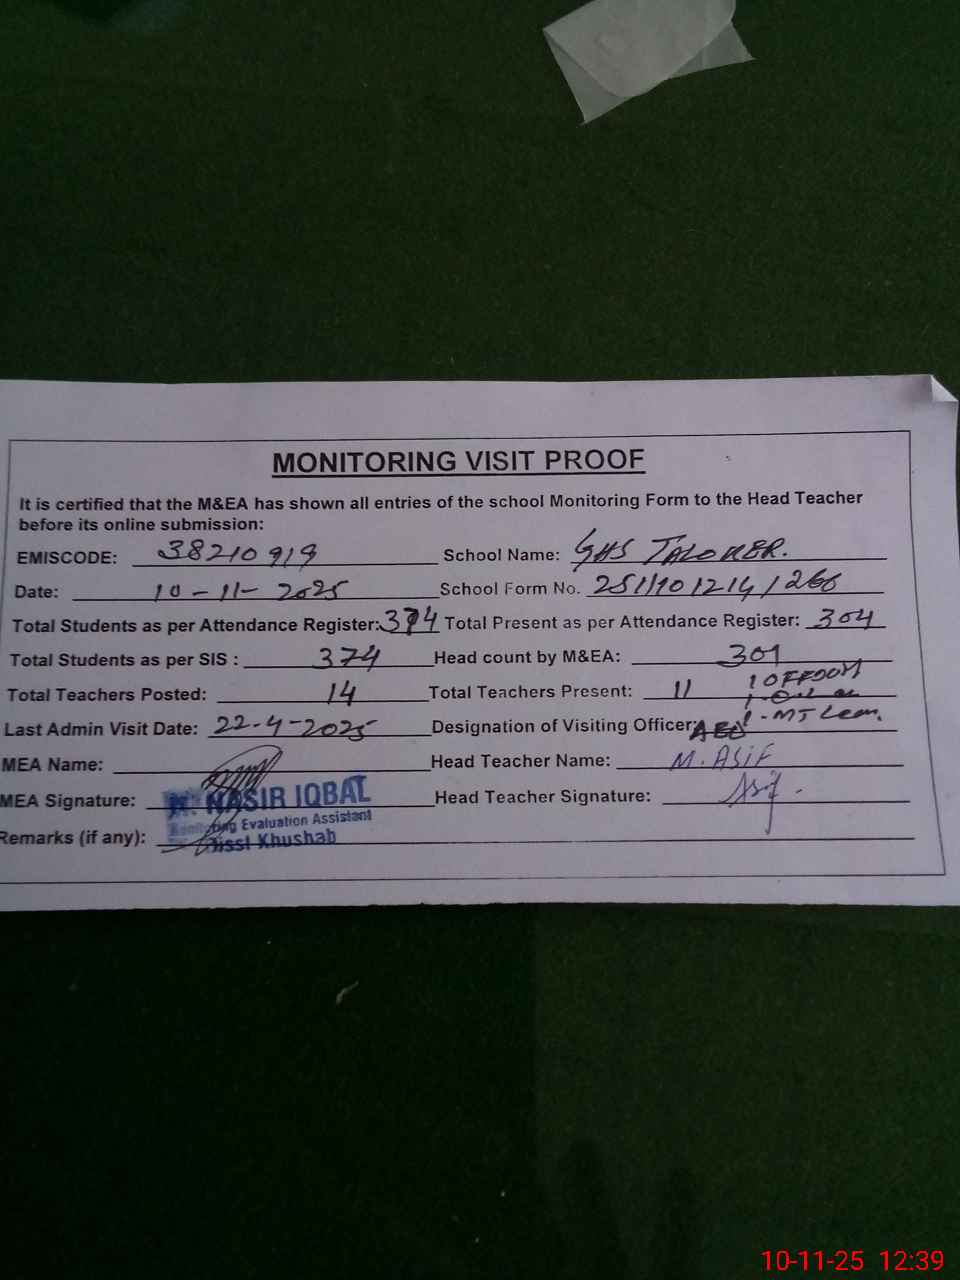 MONITORING VISIT PROOF
It is certified that the M&EA has shown all entries of the school Monitoring Form to the Head Teacher
before its online submission:
EMISCODE: 38210919 School Name: GHS TALOKER.
Date: 10-11-2025 School Form No. 251110 1214/266
Total Students as per Attendance Register: 374 Total Present as per Attendance Register: 304
Total Students as per SIS : 374 Head count by M&EA: 301
Total Teachers Posted: 14 Total Teachers Present: 11
Last Admin Visit Date: 22-4-2025 Designation of Visiting Officer: AEO
MEA Name: Head Teacher Name: M. ASIF
MEA Signature: Head Teacher Signature: Asif.
NASIR IQBAL
Monitoring Evaluation Assistant
Khushab
Remarks (if any):
10-11-25 12:39